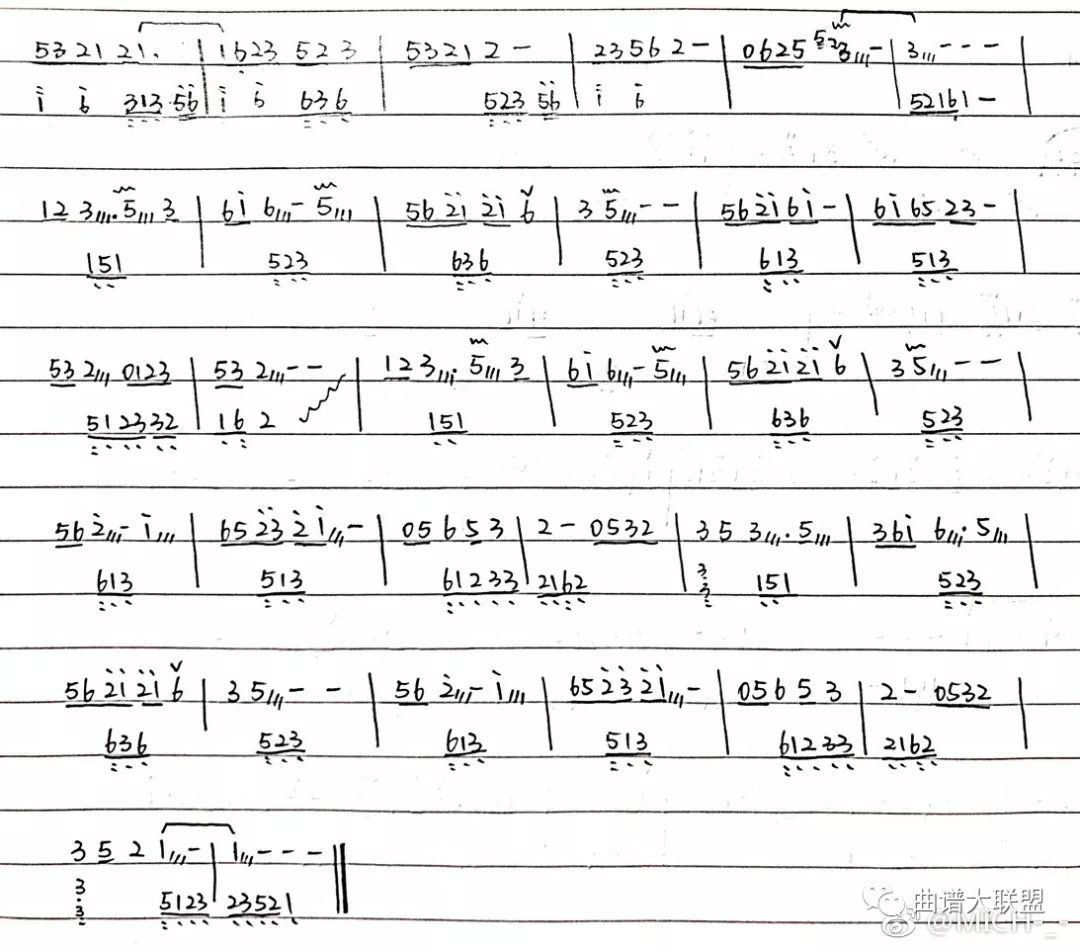 5321 21. | 1623 523 | 5321 2 - | 23562 - | 0625 523 3 - | 3 - - - |
i 6 313·56 | i 6 636 | 523 56 | i 6 | | 52161 - |
12 3 . 5 3 | 6i 6 - 5 | 56 2i 2i 6 | 3 5 - - | 56 2i 6i - | 6i 65 23 - |
151 | 523 | 636 | 523 | 613 | 513 |
53 2 0123 | 53 2 - - | 12 3 . 5 3 | 6i 6 - 5 | 56 2i 2i 6 | 3 5 - - |
512332 | 16 2 | 151 | 523 | 636 | 523 |
56 2 - i | 65 23 2i - | 05 6 5 3 | 2 - 0532 | 3 5 3 . 5 | 36i 6 . 5 |
613 | 513 | 61233 | 2162 | 3 3 151 | 523 |
56 2i 2i 6 | 3 5 - - | 56 2 - i | 65 23 2i - | 05 6 5 3 | 2 - 0532 |
636 | 523 | 613 | 513 | 61233 | 2162 |
3 5 2 1 - | 1 - - - ||
3 3 5123 | 23521 ||
曲谱大联盟
@MICH-_-